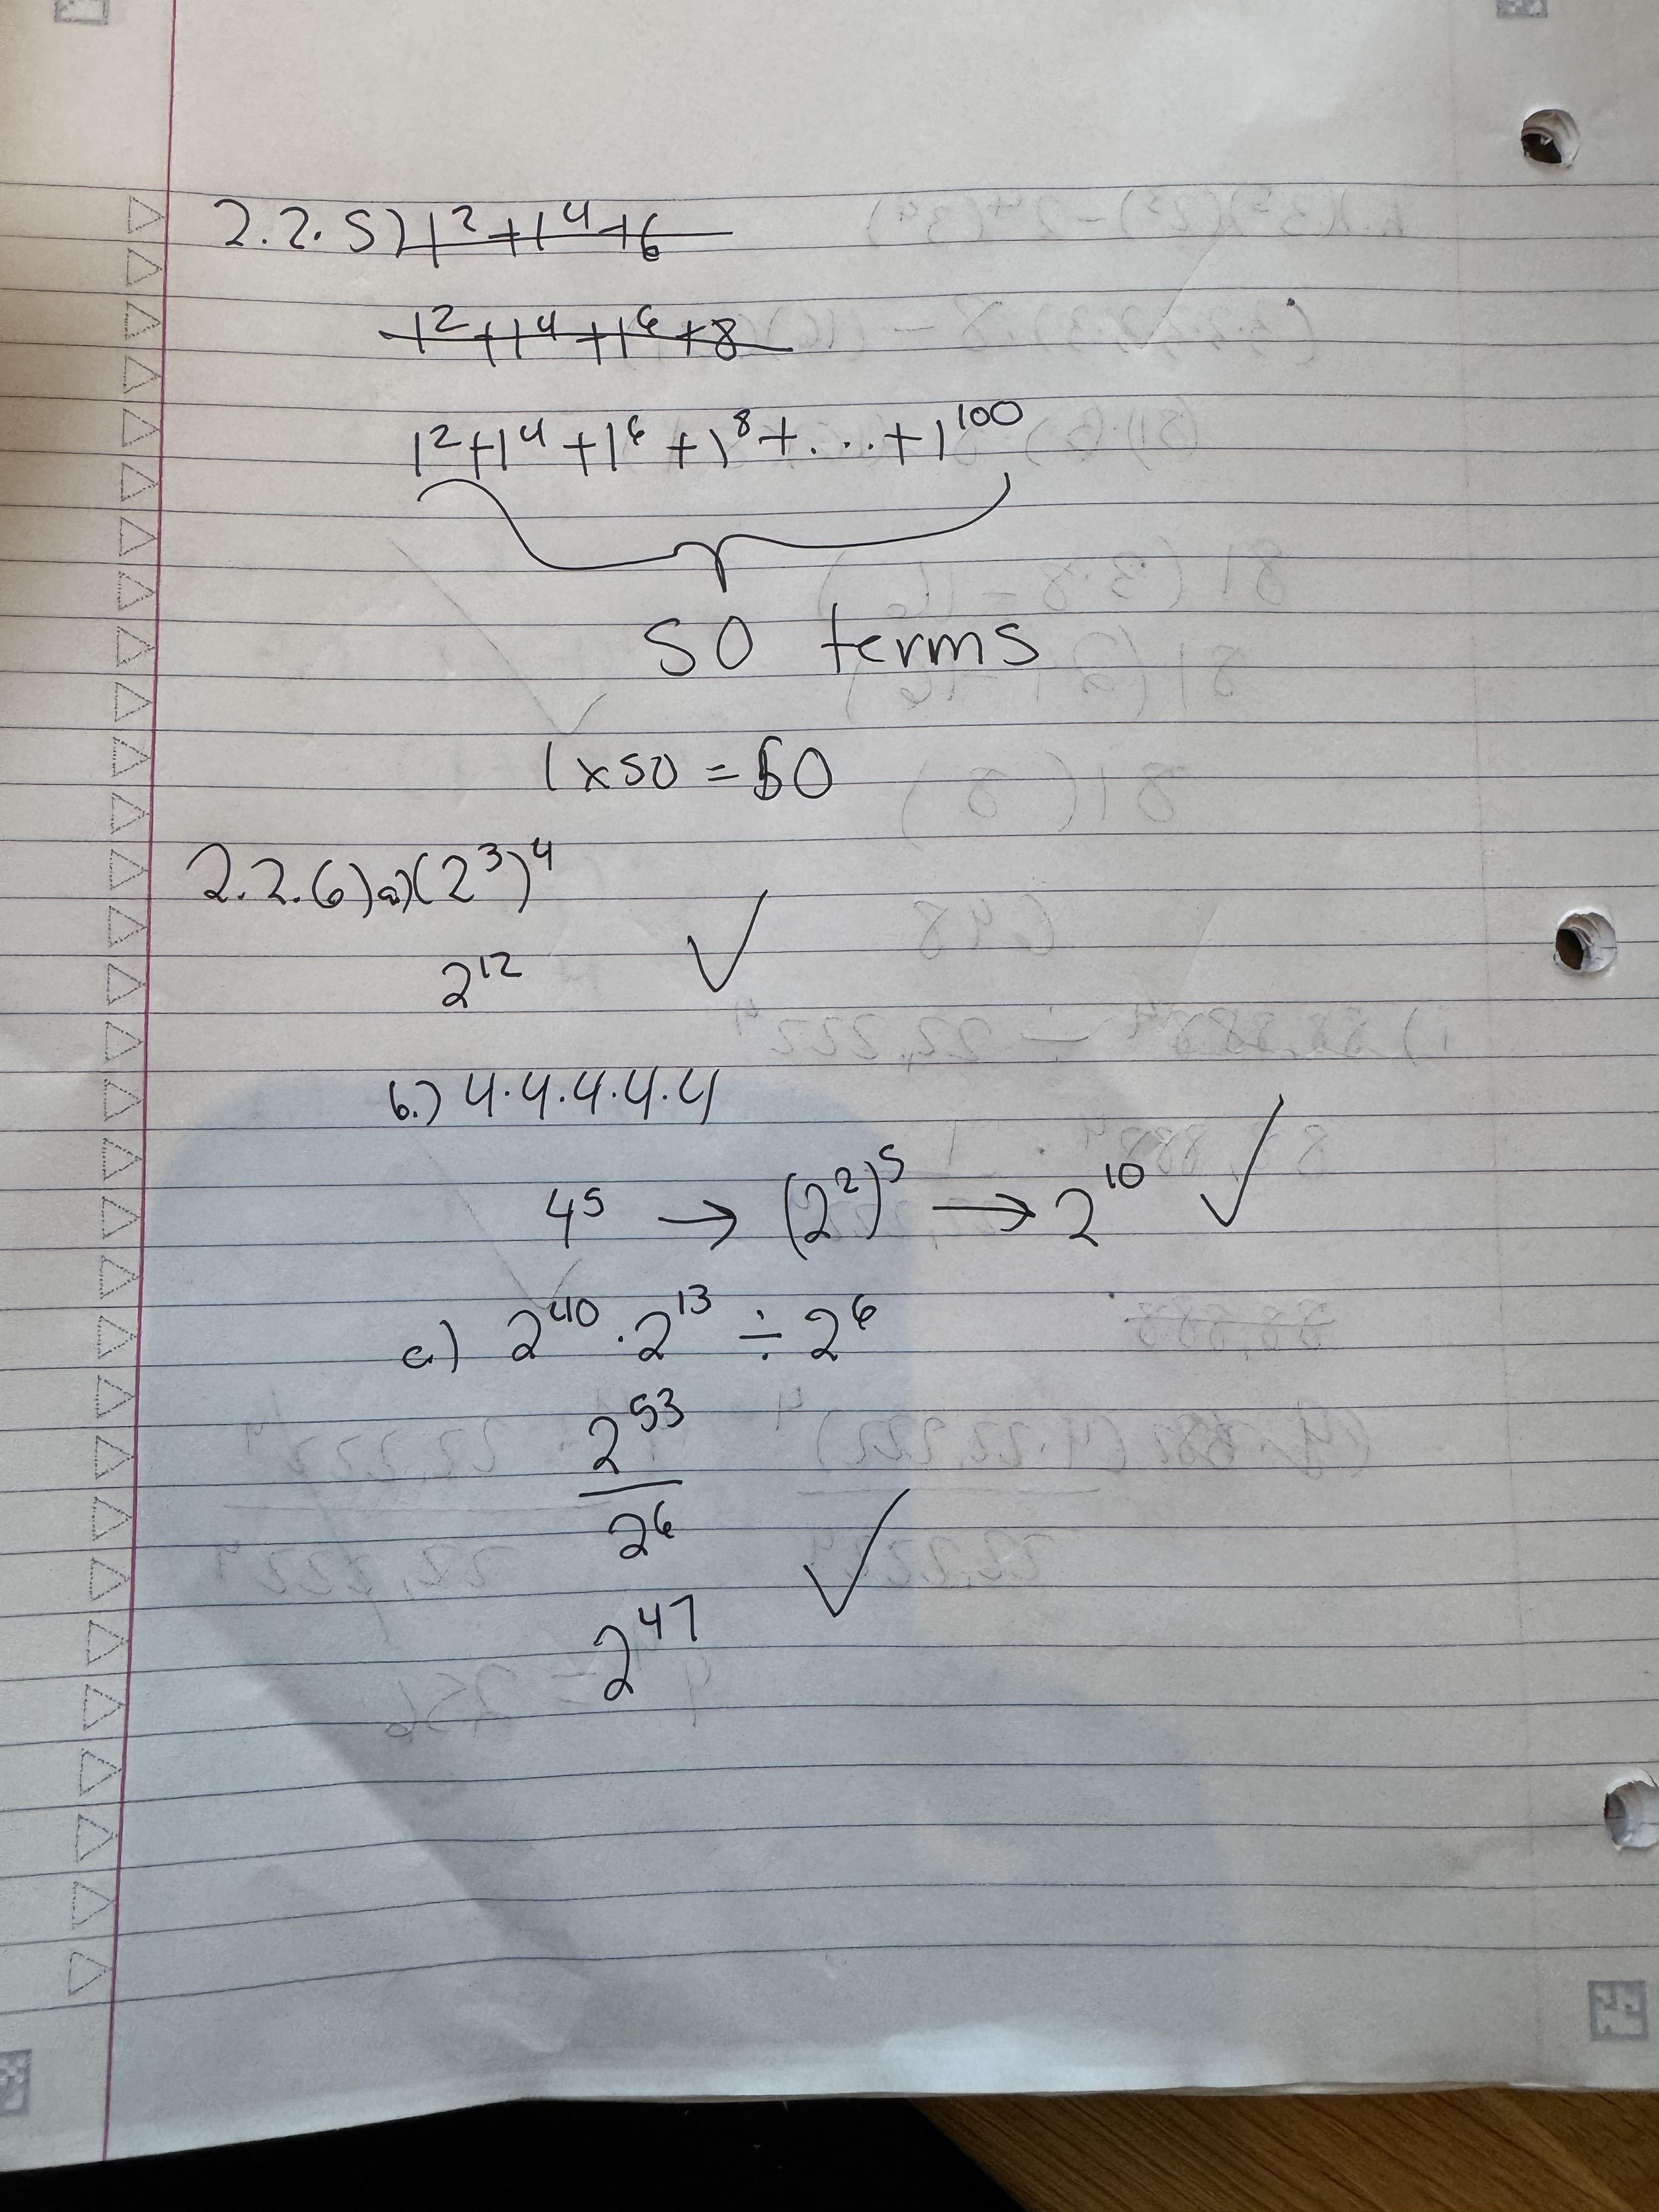 2.2.5) 1² + 1⁴ + 6
1² + 1⁴ + 1⁶ + 8
1² + 1⁴ + 1⁶ + 1⁸ + ... + 1¹⁰⁰
50 terms
1 x 50 = 50
2.2.6) a) (2³)⁴
2¹² ✓
b.) 4·4·4·4·4
4⁵ → (2²)⁵ → 2¹⁰ ✓
c) 2⁴⁰ · 2¹³ ÷ 2⁶
2⁵³
2⁶
2⁴⁷ ✓